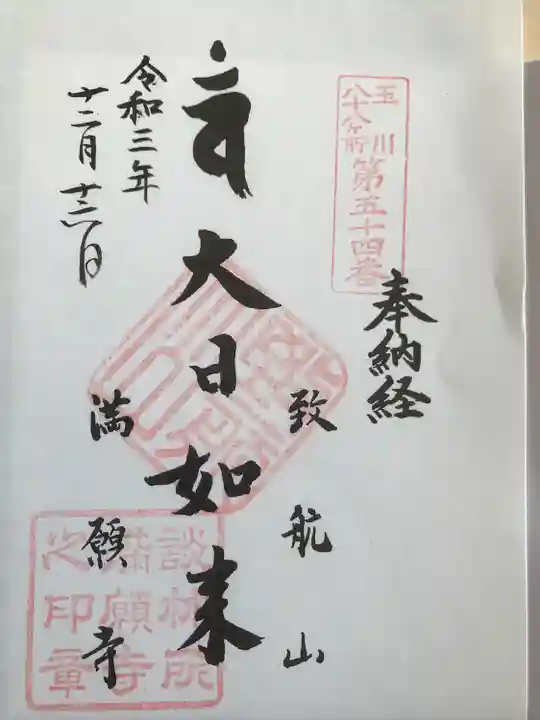 玉川
八十八ヶ所
第五十四番
奉納経
致航山
大日如来
満願寺
令和三年
十二月十二日
談林所
満願寺
之印章